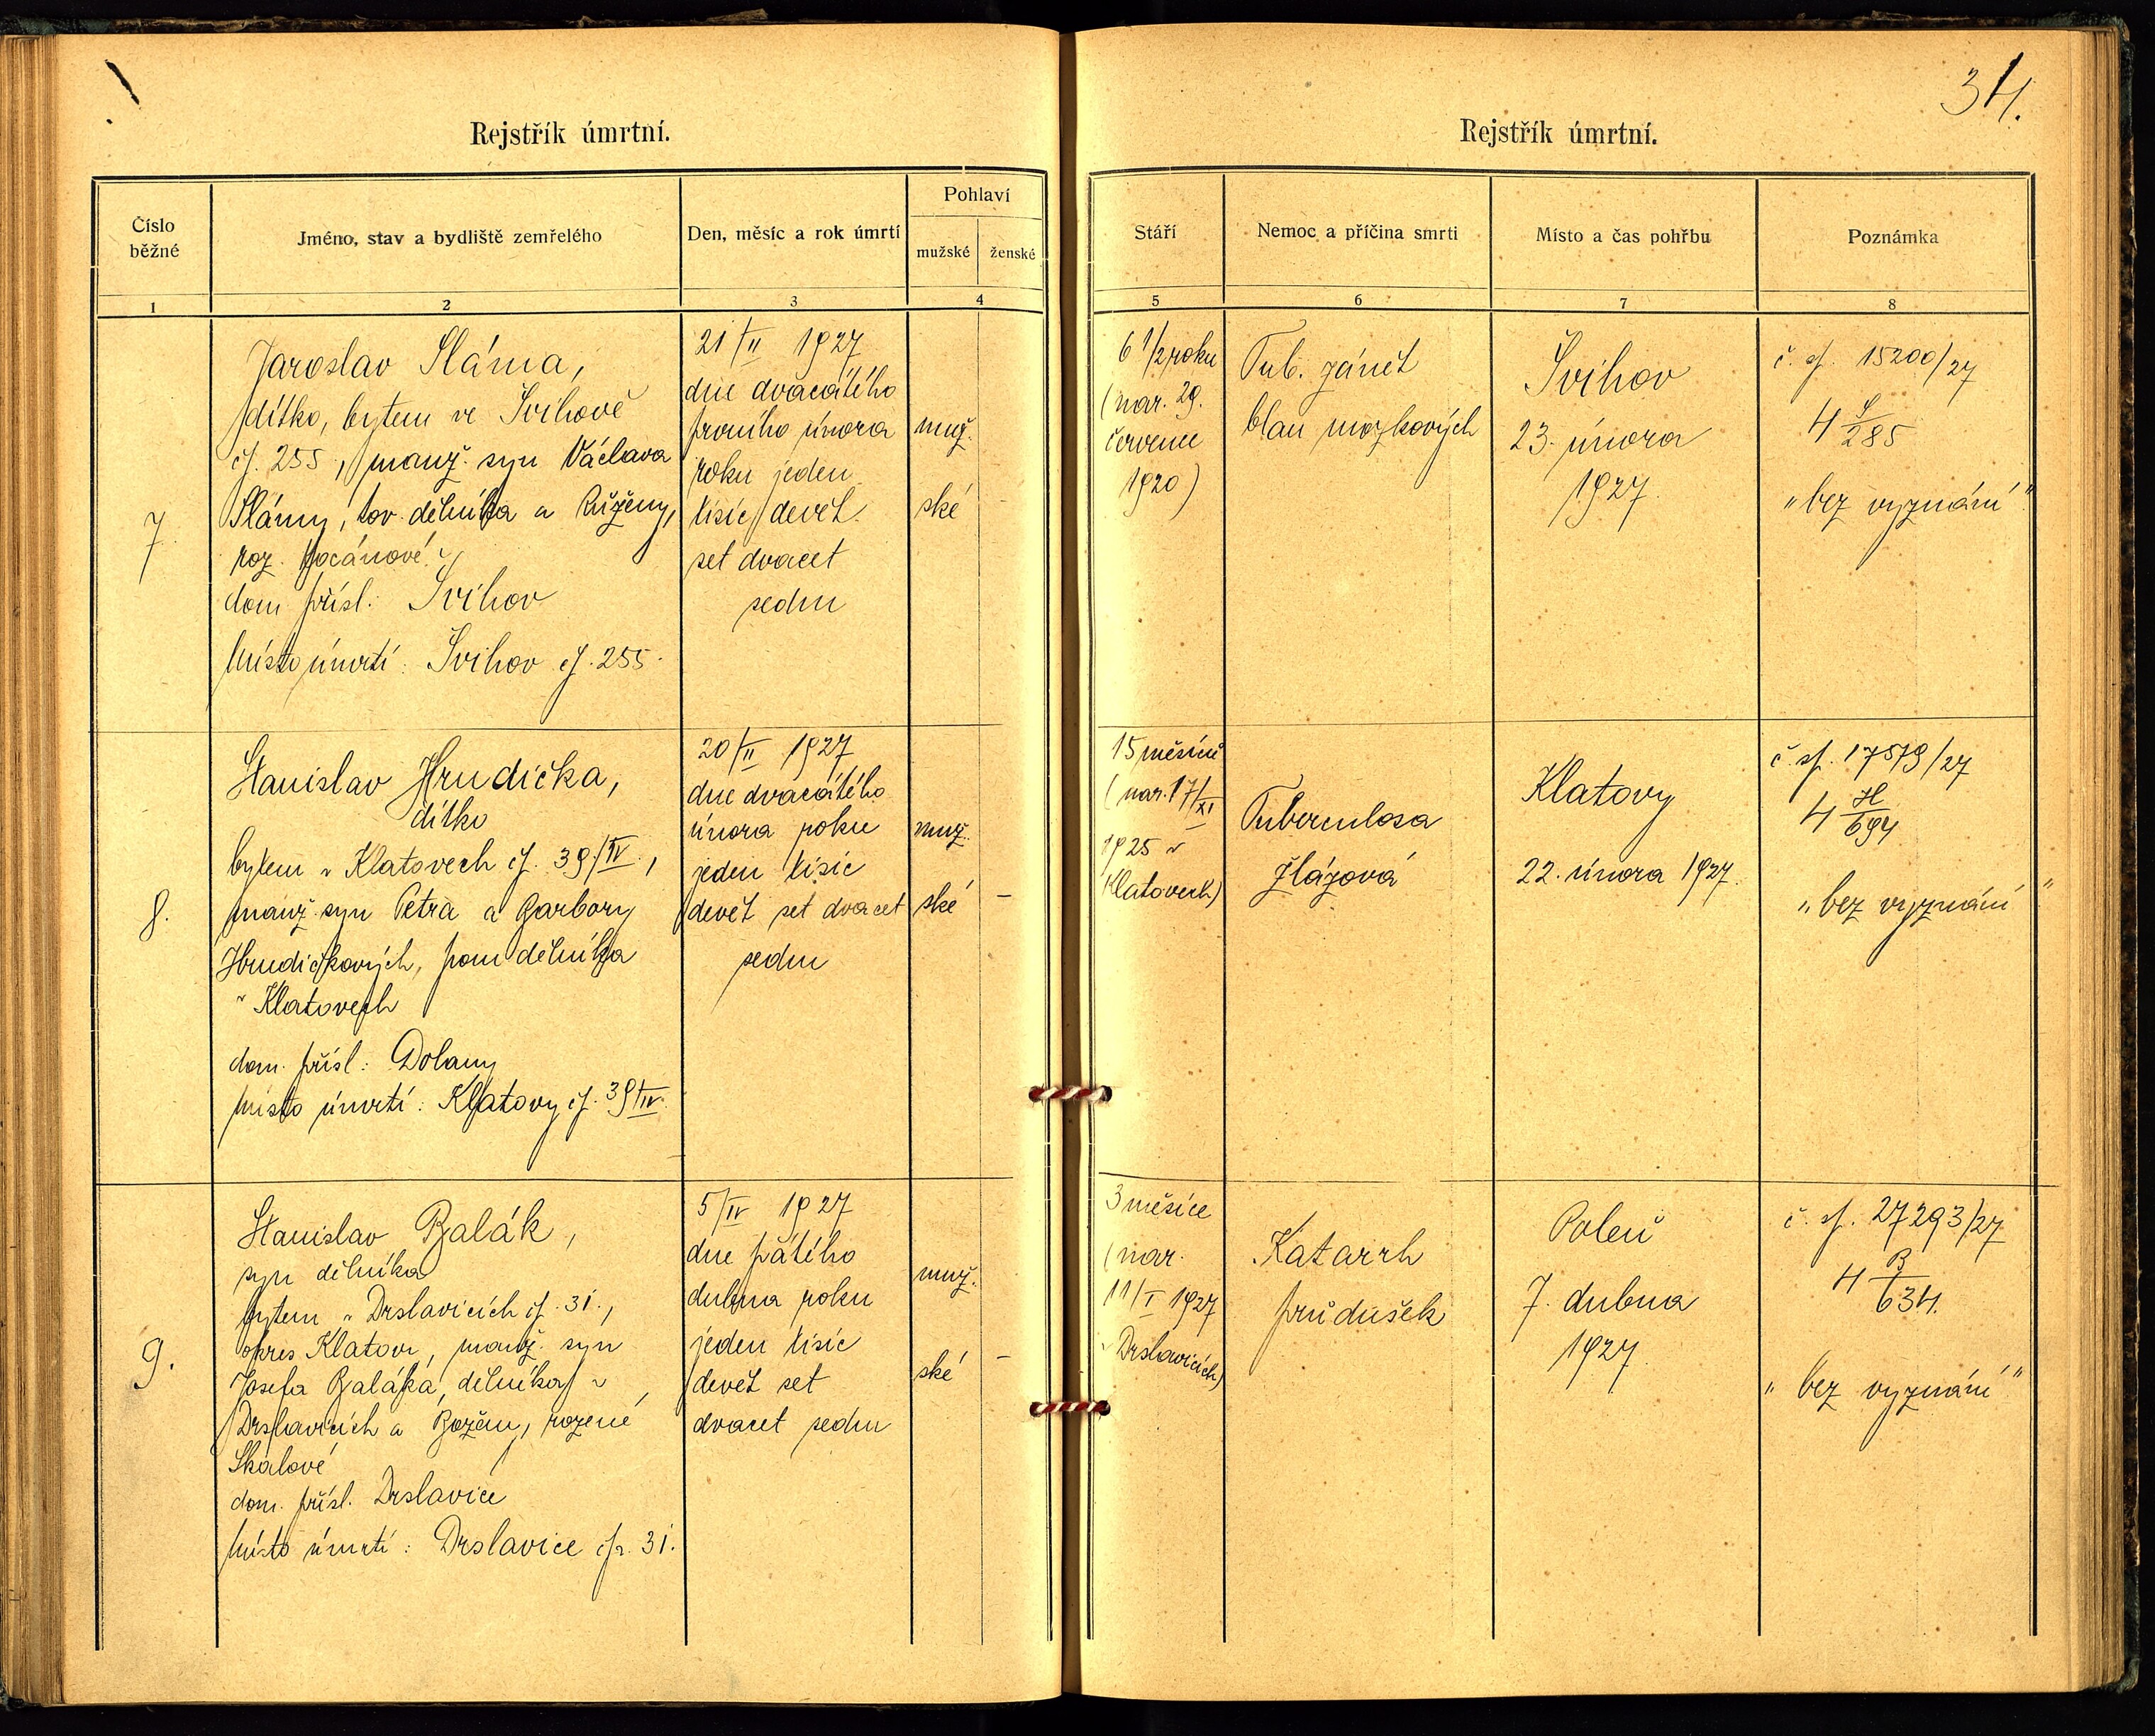 34.
Rejstřík úmrtní.
Číslo běžné
Jméno, stav a bydliště zemřelého
Den, měsíc a rok úmrtí
Pohlaví
mužské
ženské
1
2
3
4
7.
Jaroslav Sláma,
dítko, bytem ve Švihově
čp. 255, manž. syn Václava
Slámy, tov. dělníka a Růženy,
roz.
dom. přísl.: Švihov
Místo úmrtí: Švihov čp. 255.
21/II 1927
dne dvacátého
prvního února
roku jeden
tisíc devět
set dvacet
sedm
muž.
ské
8.
Stanislav Hrudička,
dítko
bytem v Klatovech čp. 39/IV.,
manž. syn Petra a Barbory
Hrudičkových, pom. dělníka
v Klatovech
dom. přísl.: Dolany
Místo úmrtí: Klatovy čp. 39/IV.
20/II 1927
dne dvacátého
února roku
jeden tisíc
devět set dvacet
sedm
muž.
ské –
9.
Stanislav Balák,
syn dělníka
bytem v Drslavicích čp. 31.,
okres Klatovy, manž. syn
Josefa Baláka, dělníka v
Drslavicích a Boženy, rozené
Skálové
dom. přísl. Drslavice
Místo úmrtí: Drslavice čp. 31.
5/IV 1927
dne pátého
dubna roku
jeden tisíc
devět set
dvacet sedm
muž.
ské –
Rejstřík úmrtní.
Stáří
Nemoc a příčina smrti
Místo a čas pohřbu
Poznámka
5
6
7
8
6 1/2 roku
(nar. 29.
července
1920)
Tub. zánět
blan mozkových
Švihov
23. února
1927.
č. sp. 15200/27
4 S/285
"bez vyznání".
15 měsíců
(nar. 17/XI
1925 v
Klatovech)
Tuberculosa
žlázová
Klatovy
22. února 1927.
č. sp. 17579/27
4 H/694
"bez vyznání"
3 měsíce
(nar.
11/I 1927
v Drslavicích)
Katarrh
průdušek
Poleň
7. dubna
1927
č. sp. 27293/27
4 B/634.
"bez vyznání"